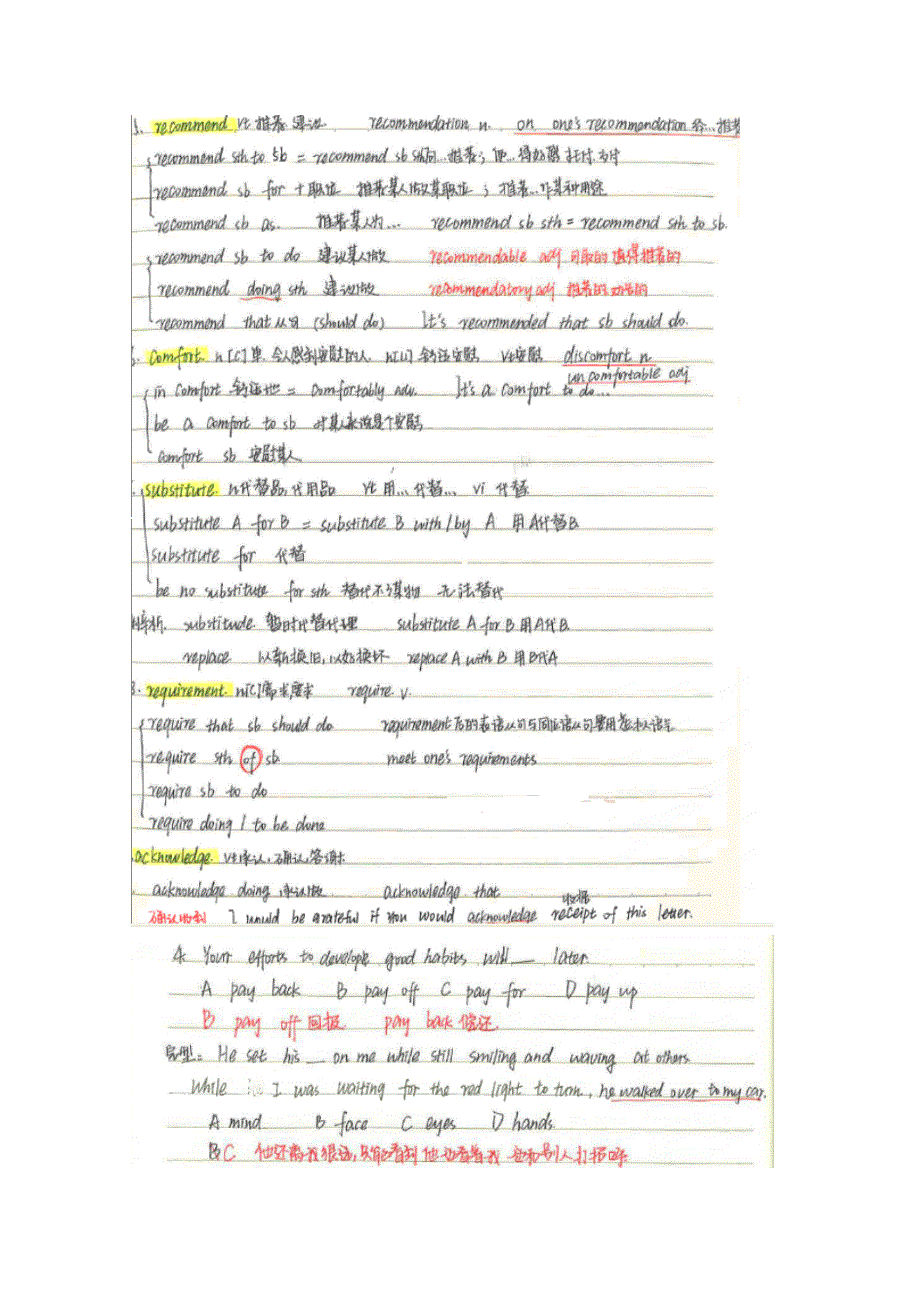 recommend vt 推荐 建议 recommendation n. on one's recommendation 经…推荐
recommend sth to sb = recommend sb sth 向…推荐; 使…得好感 托付 交付
recommend sb for + 职位 推荐某人做某职位 ; 推荐…作某种用途
recommend sb as. 推荐某人为… recommend sb sth = recommend sth to sb.
recommend sb to do 建议某人做 recommendable adj 可取的 值得推荐的
recommend doing sth 建议做 recommendatory adj 推荐的 劝告的
recommend that 从句 (should do) It's recommended that sb should do.
comfort n[C] 单. 令人感到安慰的人. n[U] 舒适 安慰 vt 安慰 discomfort n
uncomfortable adj.
in comfort 舒适地 = comfortably adv. It's a comfort to do…
be a comfort to sb 对某人来说是个安慰
comfort sb 安慰某人
substitute. n 代替品, 代用品 vt 用…代替… vi 代替
substitute A for B = substitute B with/by A 用A代替B.
substitute for 代替
be no substitute for sth 替代不了某物 无法替代
辨析. substitude 暂时代替代理 substitute A for B 用A代B.
replace 以新换旧, 以好换坏 replace A with B 用B代A
3. requirement n[C] 需求, 要求 require v.
require that sb should do requirement 后的表语从句与同位语从句要用虚拟语气
require sth of sb. meet one's requirements
require sb to do
require doing / to be done
acknowledge. vt 承认, 确认, 答谢
acknowledge doing 承认做 acknowledge that
收据
确认收到 I would be grateful if you would acknowledge receipt of this letter.
4. Your efforts to develope good habits will __ later.
A pay back B pay off C pay for D pay up
B pay off 回报 pay back 偿还.
完型: He set his __ on me while still smiling and waving at others
While I was waiting for the red light to turn, he walked over to my car.
A mind B face C eyes D hands.
B C 他还离我很远, 只能看到他也看着我 还和别人打招呼